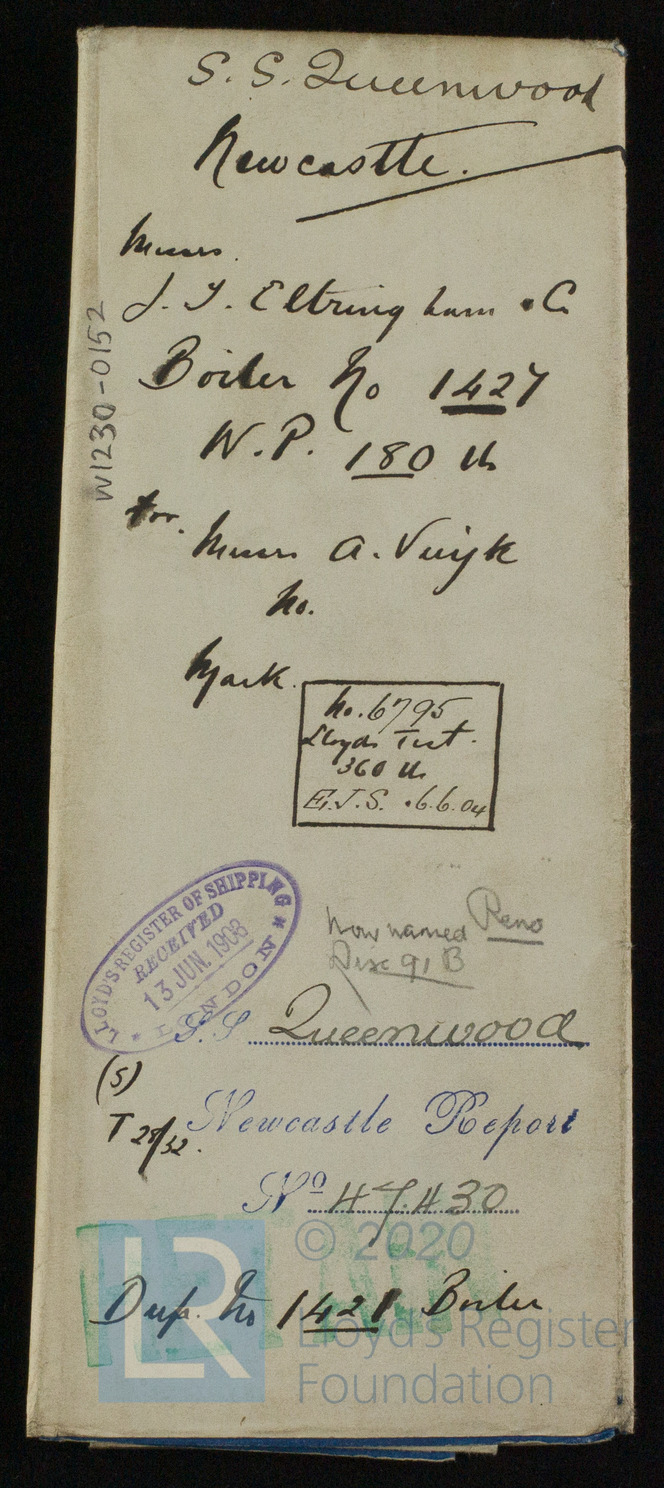 S. S. Queenwood
Newcastle.
Messrs.
J. T. Eltringham & Co
Boiler No 1427
W.P. 180 lb
for.
Messrs A. Vuijk
No.
Mark.
No. 6795
Lloyds Test.
360 lb
E.J.S. .6.6.04
W1230-0152
LLOYD'S REGISTER OF SHIPPING
RECEIVED
13 JUN. 1908
LONDON
Now named Reno
Disc 91 B
S.S Queenwood
(S)
T 28/32.
Newcastle Report
No 47.430
Dup. No 1428 Boiler
LR
© 2020
Lloyd's Register
Foundation